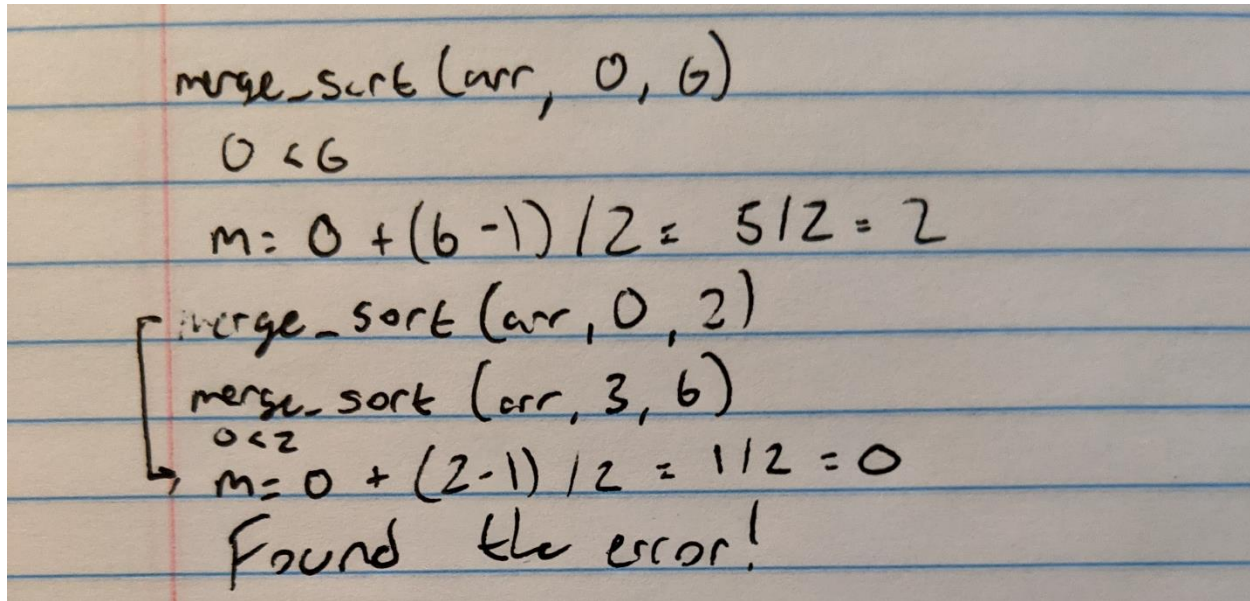 merge_sort (arr, 0, 6)
0 < 6
m = 0 + (6 - 1) / 2 = 5 / 2 = 2
merge_sort (arr, 0, 2)
merge_sort (arr, 3, 6)
0 < 2
m = 0 + (2 - 1) / 2 = 1 / 2 = 0
Found the error!